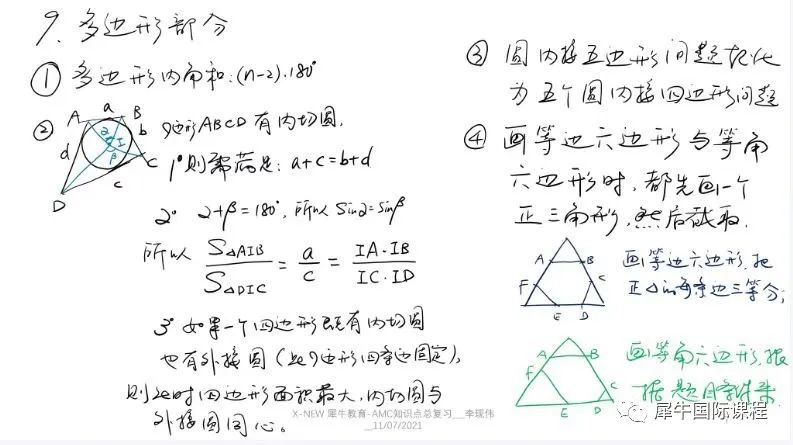 9. 多边形部分
① 多边形内角和:(n-2)·180°
② 四边形ABCD有内切圆.
A a B
α I b
d β C
c
D
1° 则需满足: a+c=b+d
2° α+β=180°, 所以 sinα=sinβ
所以 S△AIB/S△DIC = a/c = IA·IB/IC·ID
3° 如果一个四边形既有内切圆
也有外接圆(此四边形四条边固定),
则此时四边形面积最大,内切圆与
外接圆同心。
③ 圆内接五边形问题转化
为五个圆内接四边形问题
④ 画等边六边形与等角
六边形时,都先画一个
正三角形,然后截取.
A B
F C
E D
画等边六边形,把
正△的每条边三等分;
A B
F C
E D
画等角六边形,根
据题目条件来
X-NEW 犀牛教育-AMC知识点总复习__李现伟
__11/07/2021
犀牛国际课程